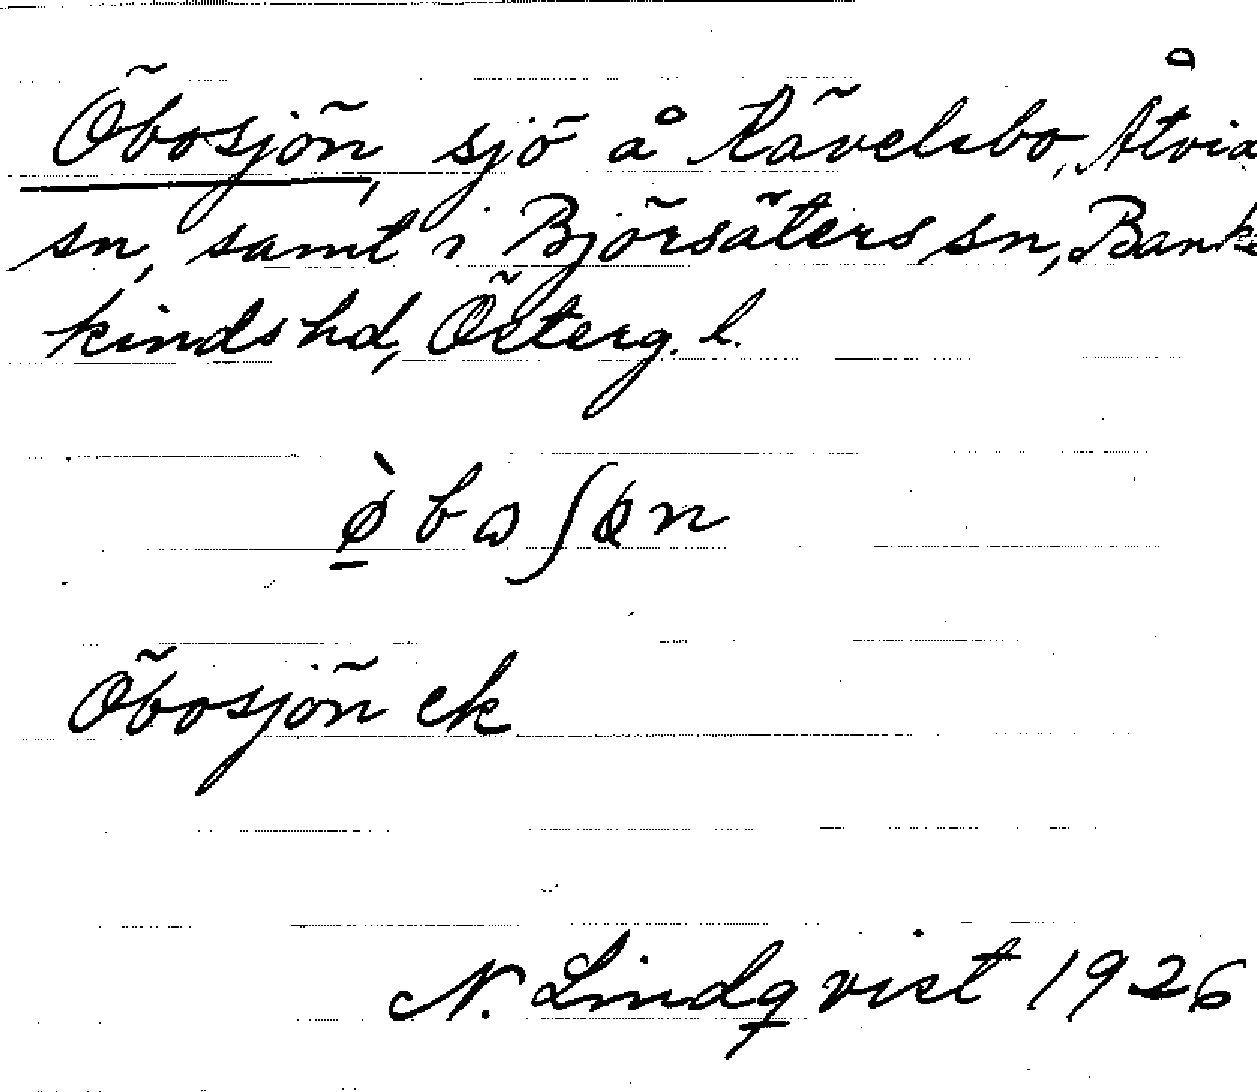 Öbosjön, sjö å Rävelsbo, Åtvid
sn, samt i Björsäters sn, Banke
kinds hd, Österg. l.
Öbosjön ek
N. Lindqvist 1926